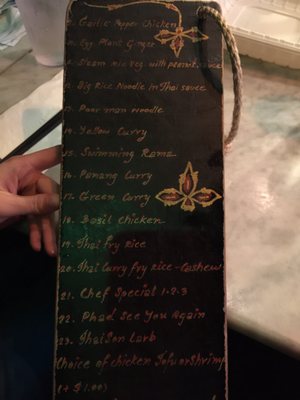 Garlic Pepper Chicken
Egg Plant Ginger
Steam mix veg with peanut sauce
Big Rice Noodle in Thai sauce
Poor man Noodle
14. Yellow Curry
15. Swimming Rama
16. Panang Curry
17. Green Curry
18. Basil Chicken
19. Thai fry Rice
20. Thai Curry fry rice - Cashew
21. Chef Special 1-2-3
22. Phad See You Again
23. ThaiSon Larb
Choice of chicken Tofu or Shrimp
(+ $1.00)